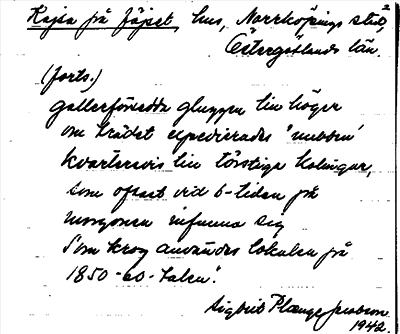 Kajsa på Röjset, hus, Norrköpings stad, 2
Östergötlands län.
(forts.)
gallerförsedda gluggen till höger
om trädet expedierades "nubben"
kvartersvis till törstige kolingar,
som oftast vid 6-tiden på
morgonen infunno sig
Som krog användes lokalen på
1850-60-talen".
Sigbrit Plænge Jacobson
1942.